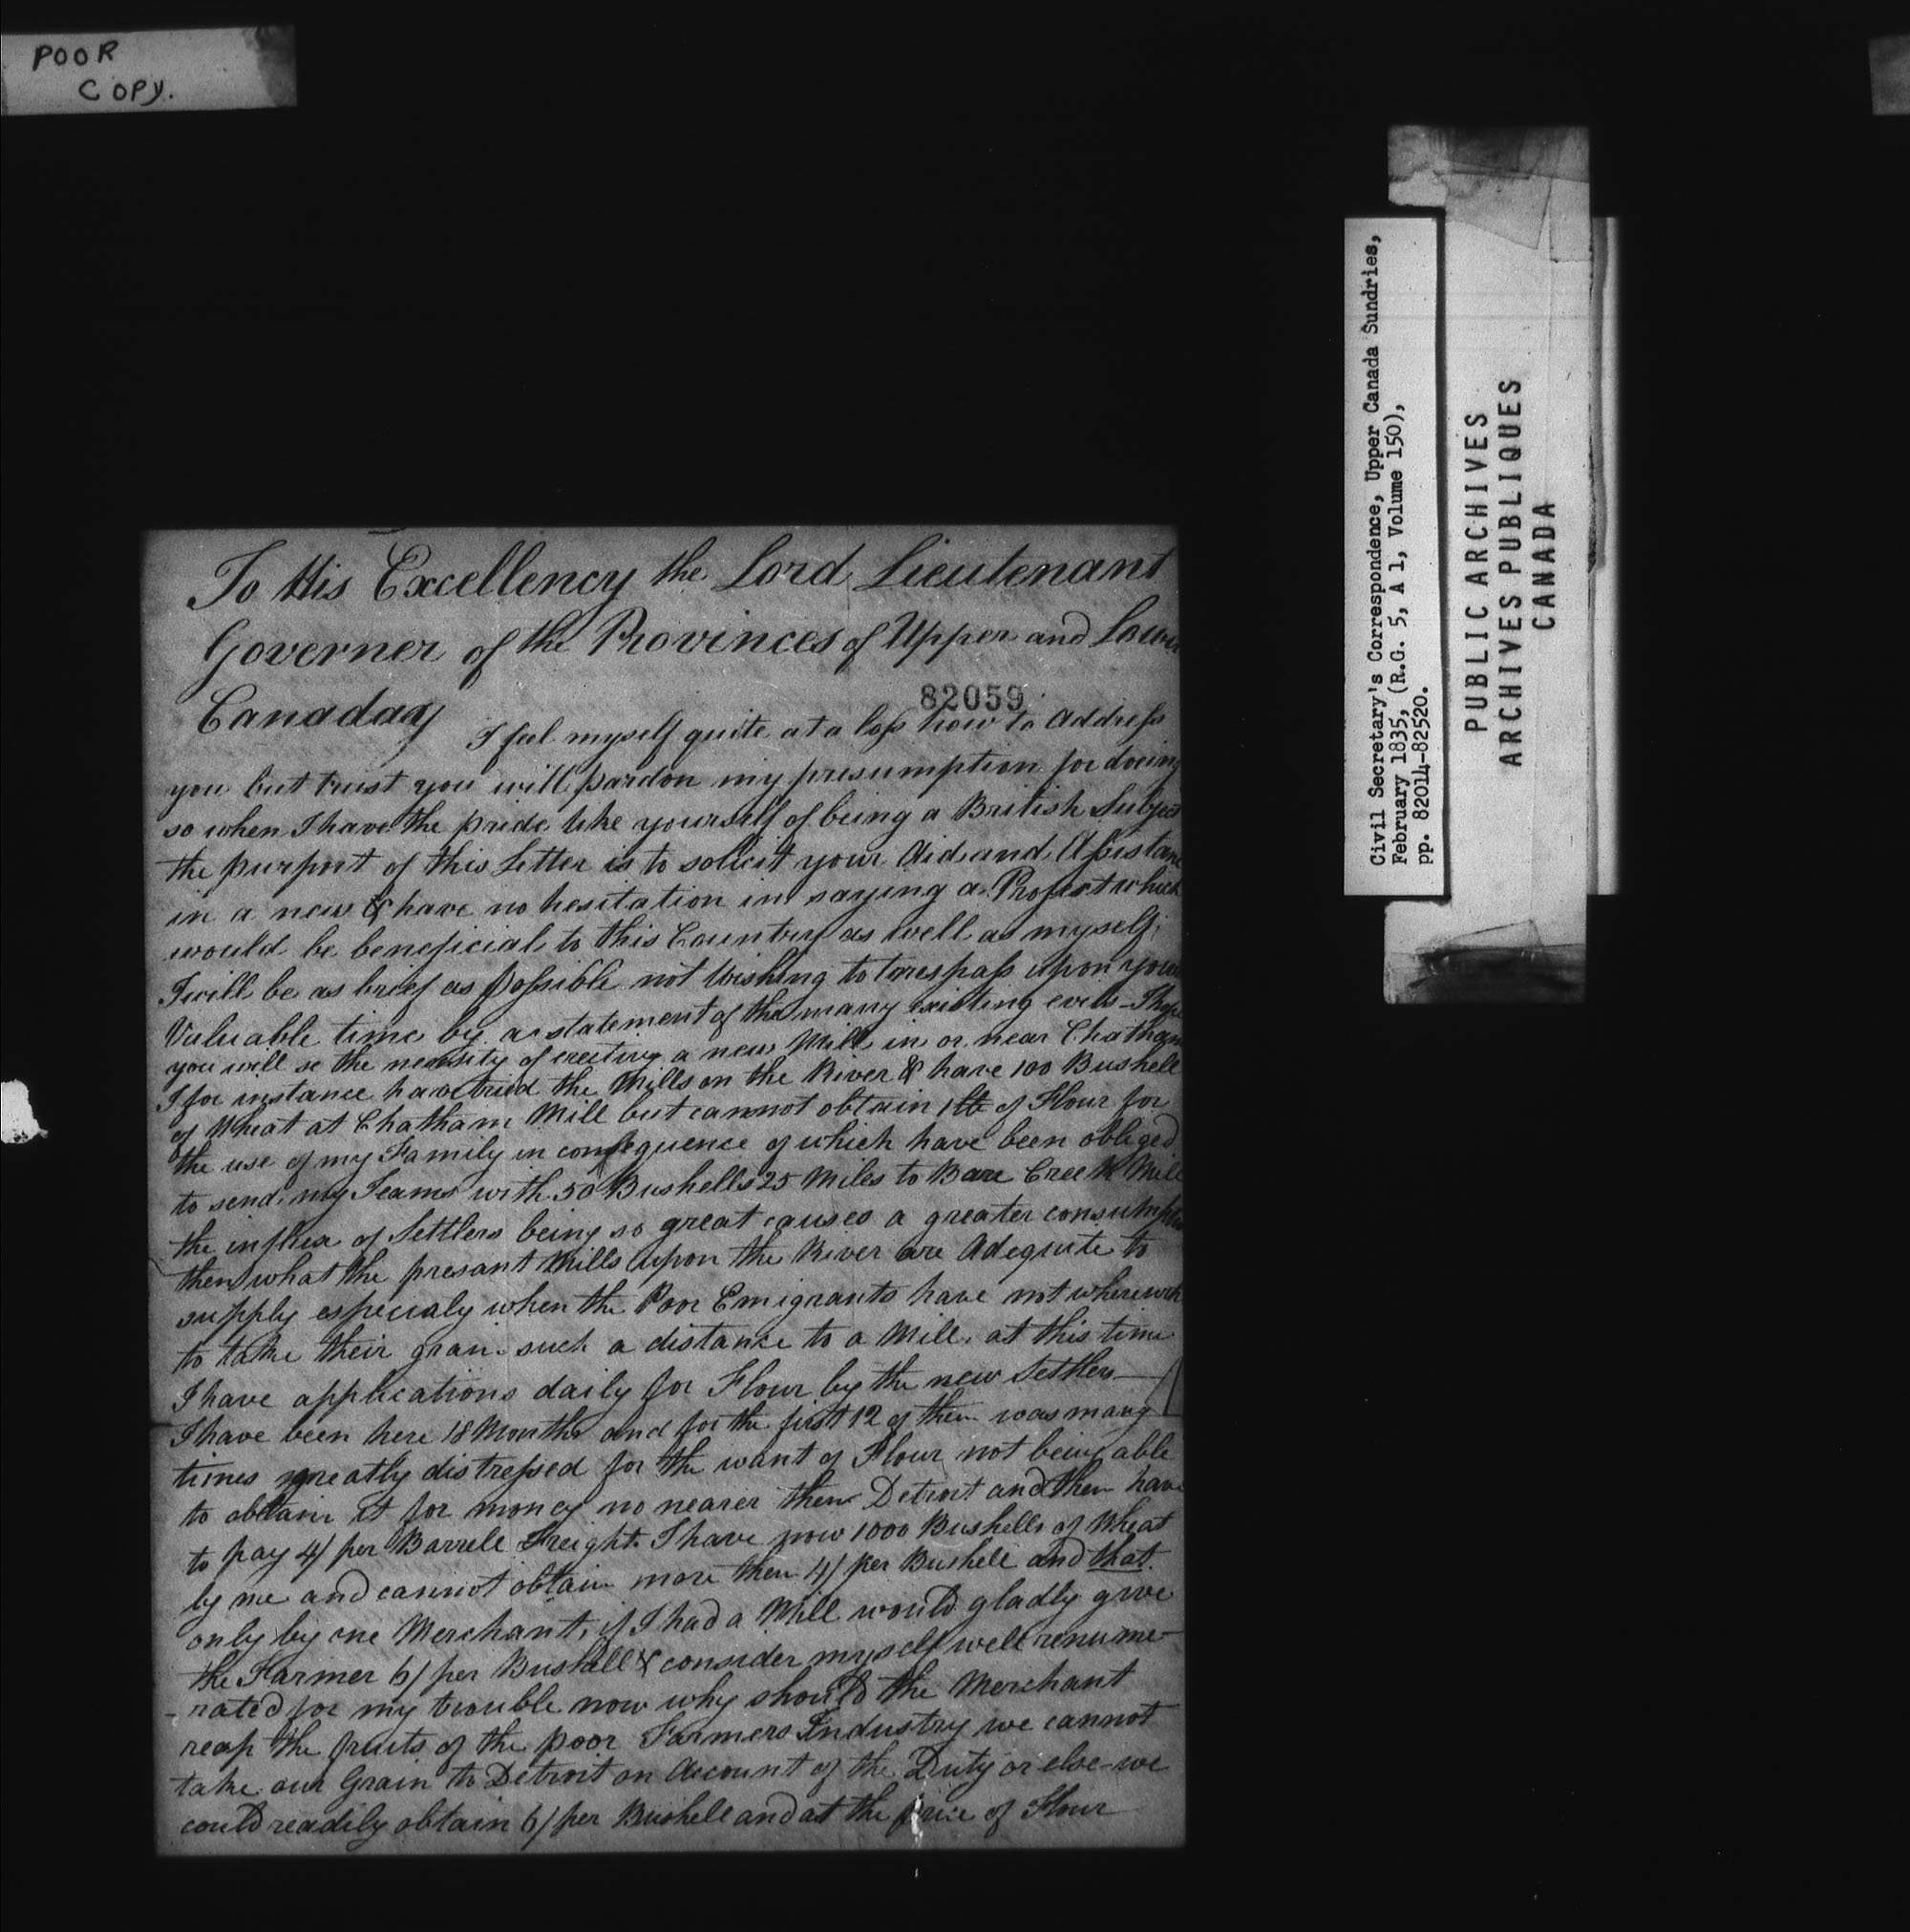 POOR
COPY.
To His Excellency the Lord Lieutenant
Governer of the Provinces of Upper and Lower
Canaday
82059
I feel myself quite at a loss how to Address
you but trust you will pardon my presumption for doeing
so when I have the pride like yourself of being a British Subject
the purport of this Letter is to solicit your Aid and Assistan
in a new & have no hesitation in saying a Project which
would be beneficial to this Country as well as myself.
I will be as brief as possible not wishing to trespass upon your
Valuable time by a statement of the many existing evils - I hope
you will se the necessity of erecting a new Mill in or near Chatham
I for instance have tried the Mills on the River & have 100 Bushell
of Wheat at Chatham Mill but cannot obtain 1 lb of Flour for
the use of my Family in consequence of which have been obliged
to send my Teams with 50 Bushells 25 Miles to Bare Creek Mill
the influx of Settlers being so great causes a greater consumption
then what the presant Mills upon the River are Adequite to
supply especialy when the Poor Emigrants have not wherewith
to take their grain such a distance to a Mill. at this time
I have applications daily for Flour by the new Settlers—
I have been here 18 Months and for the first 12 of them was many
times greatly distressed for the want of Flour not being able
to obtain it for money no nearer then Detroit and then have
to pay 4/ per Barrele Freight. I have now 1000 Bushells of Wheat
by me and cannot obtain more then 4/ per Bushell and that
only by one Merchant, if I had a Mill would gladly give
the Farmer 6/ per Bushell & consider myself well renume-
-rated for my trouble now why should the Merchant
reap the fruits of the poor Farmers Industry we cannot
take our Grain to Detroit on Account of the Duty or else we
could readily obtain 6/ per Bushell and at the price of Flour
Civil Secretary's Correspondence, Upper Canada Sundries,
February 1835, (R.G. 5, A 1, Volume 150),
pp. 82014-82520.
PUBLIC ARCHIVES
ARCHIVES PUBLIQUES
CANADA